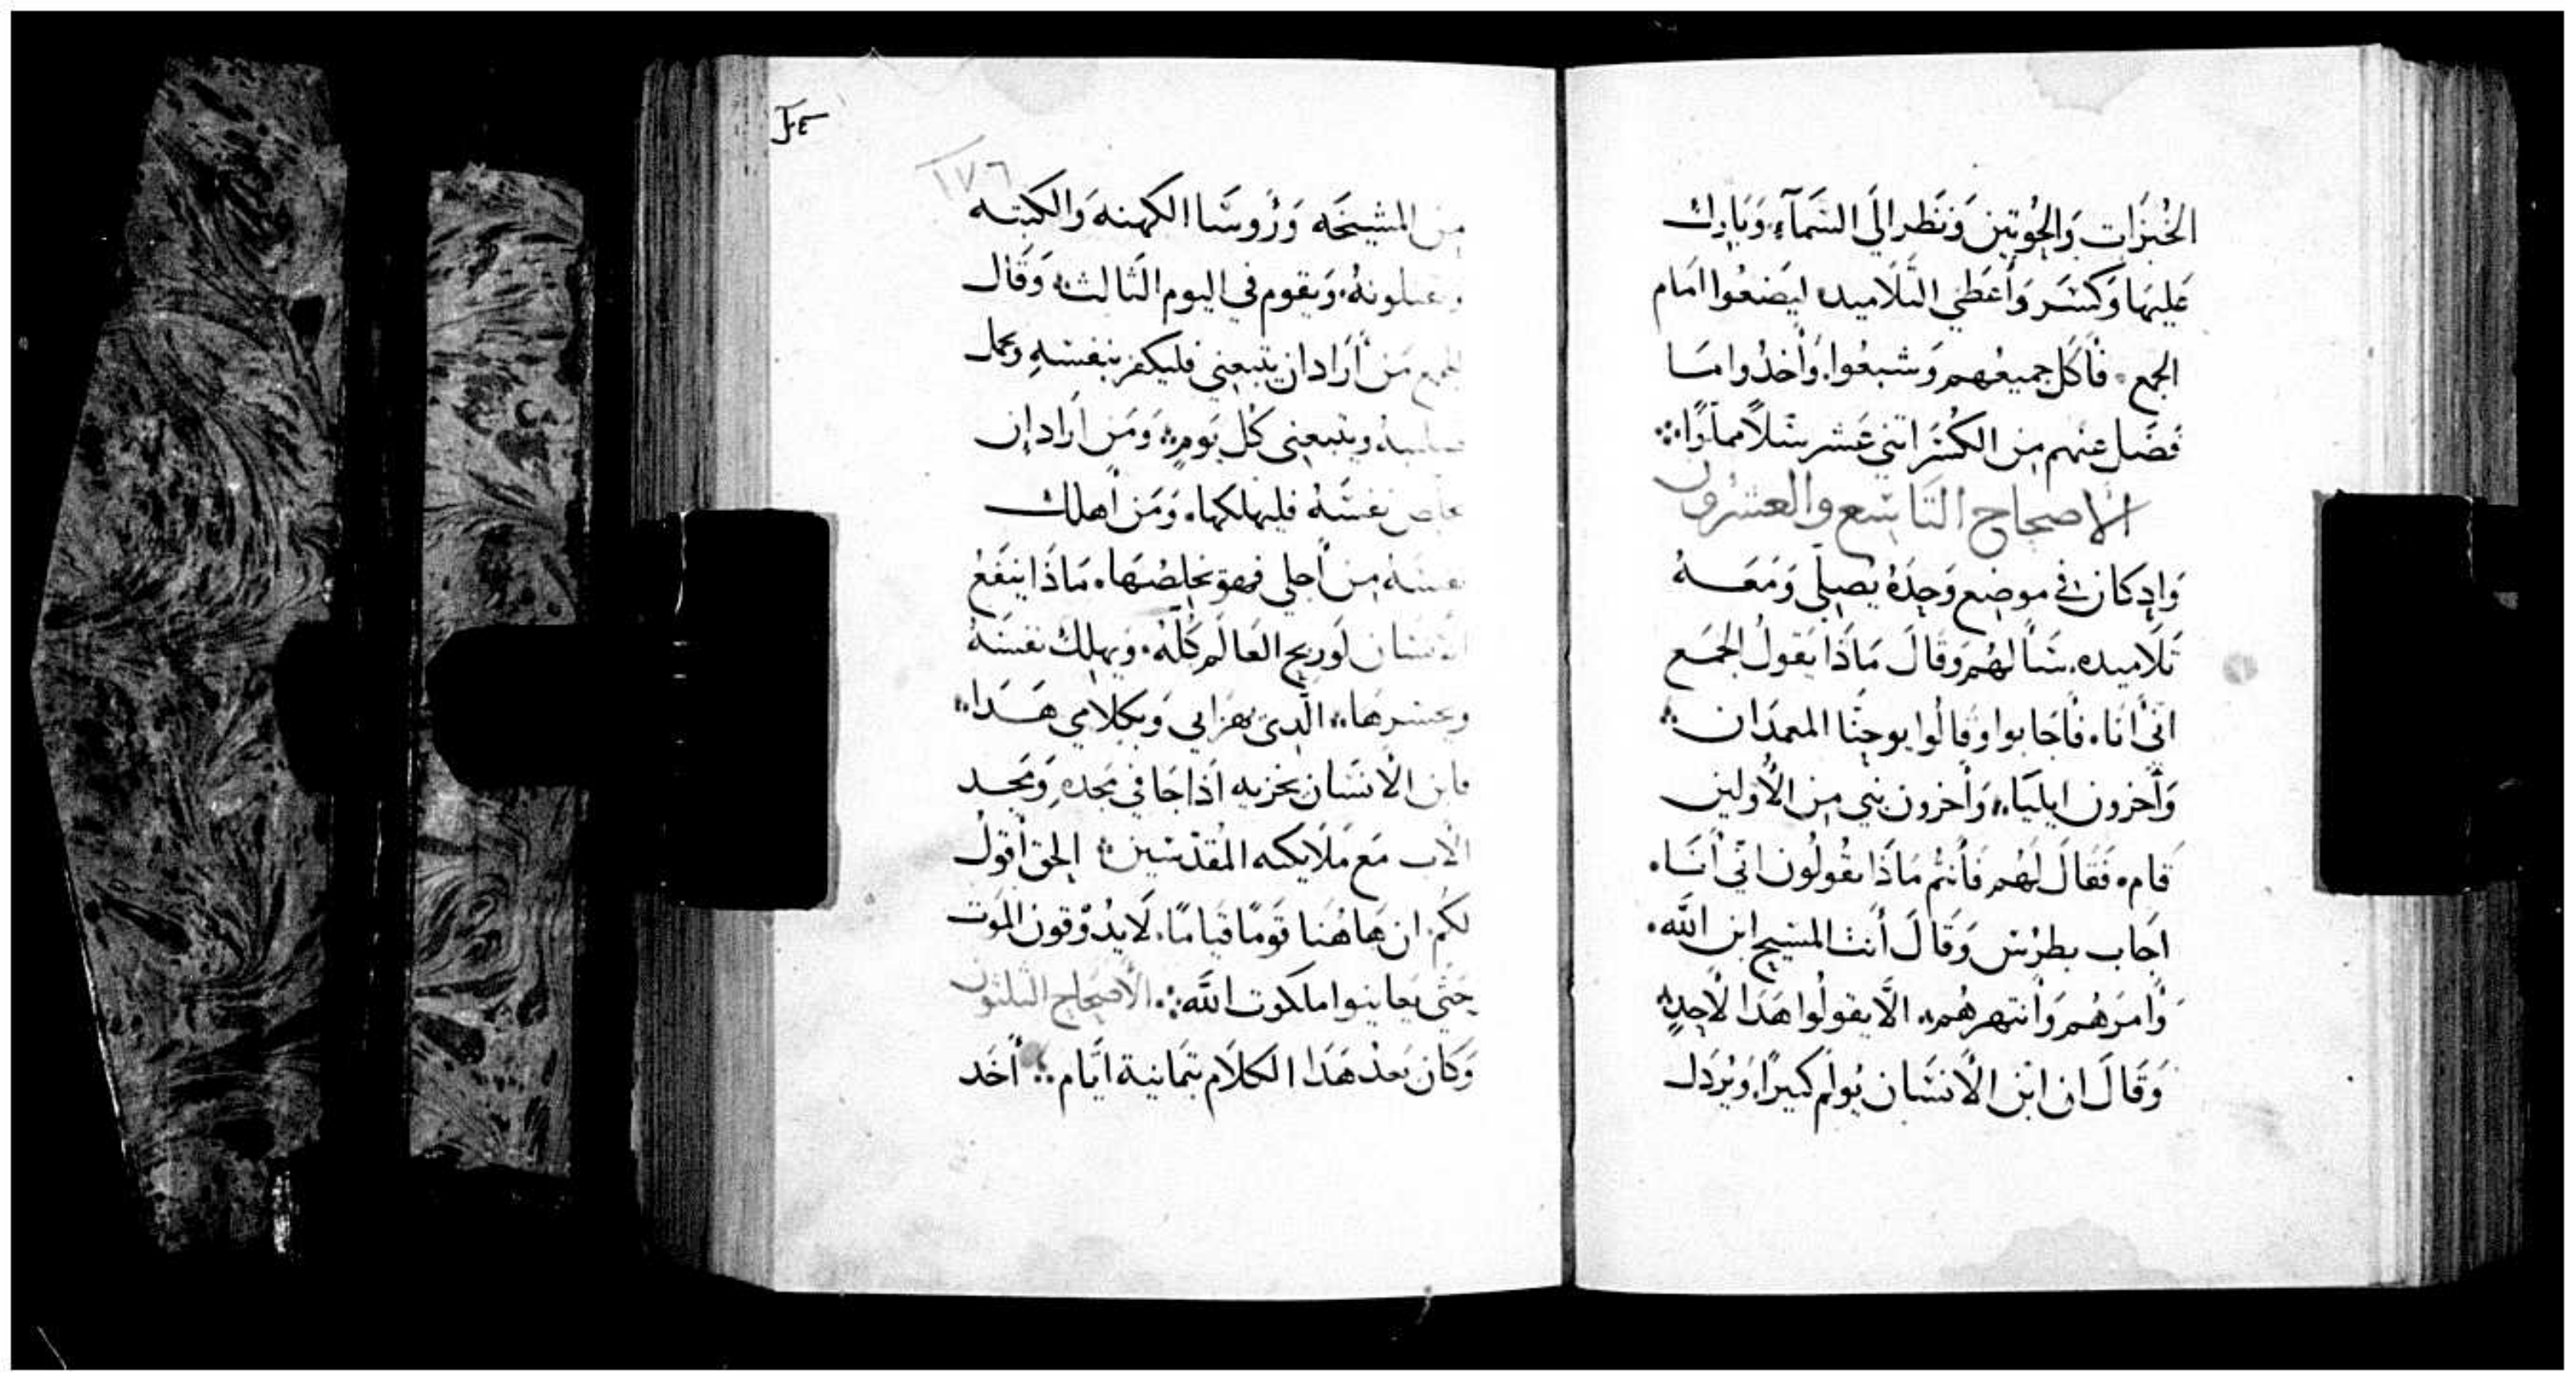 الخُبزَات وَالحُوتين وَنَظر الَي السَمآءِ، وَبَارك
عَليهَا وَكسَر وَأعَطي التَلاميد ليَضعُوا امَام
الجمع ٠ فأكل جميعُهم وَشبعُوا. وَأخدُوا مَا
فَضَل عنهم من الكسَر اتني عَشر سَلاً مملوًا ⁘
الاصحاح التَاسَع والعشرون
وَاد كان في موضع وَحدَهُ يصلي وَمَعَهُ
تَلاَميده. سَأ لهُم وَقَالَ مَاذَا يَقولُ الجمَع
انّي أنَا. فأجَابوا وقالُوا يوحنَّا المعمدَان ⁘
وَأخرون ايليَا،، وَأخرون نبي من الأولين
قام ٠ فَقَالَ لَهُم فَأنتُم مَاذَا تقُولُون انّي أنَا ٠
اجَاب بطرس وَقَالَ أنت المسَيح ابن الله ٠
وَأمرَهُم وَأنتهرهُم،، الاَّ يقولُوا هَدَا لأحدٍ ⁘
وَقَالَ ان ابن الانسَان يُولم كتيرًا. وَيُردَل
لـ٤
١٧٦
من المشيخَه وَرُوسَا الكهنه وَالكتبه
وَيقوم في اليوم الثَالث ⁘ وَقَال
مَن أرَاد ان يتبعني فليكفر بنفسَهِ ويحمل
ويتبعني كل يَومٍ ⁘ وَمَن أرَاد ان
نفسَهُ فليهلكها. وَمَن أهلك
نفسَهُ من أجلي فهوَ يخلصُهَا. مَاذَا ينفَعُ
الانسَان لوَ ربح العَالَم كُلّهُ ٠ وَيهلك نفسَهُ
ويخسرهَا،، الَّدي يهزا بي وَبكلامي هَدَا،،
فابن الانسَان يخزيه اذَا جَا في مَجده وَمَجد
الاب مَع مَلايكته المُقدّسَين ⁘ الحق أقولُ
لكُم. ان هَاهُنا قَومًا قيَامًا. لاَ يدُوقون الموَت
حَتّي يعَاينوا ملكوت اللَّه ⁘ الأصحَاح التلتون
وَكَان بَعد هَدَا الكلام بتمَانية ايَّام ⁘ أخَد